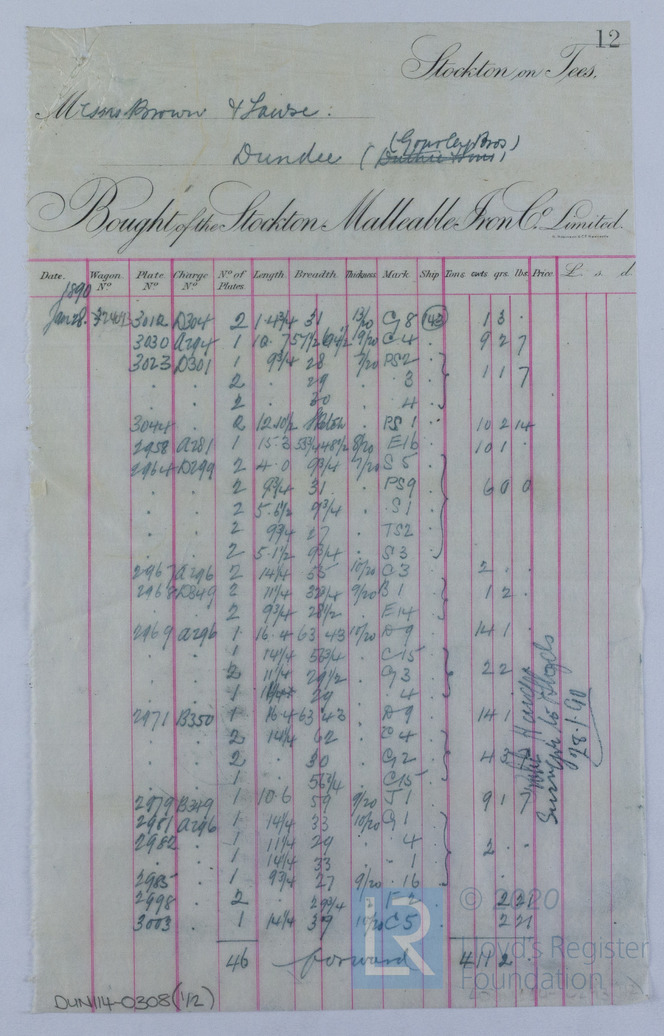 12
Stockton on Tees.
Messrs Brown & Lawse:
(Gourley Bros)
Dundee
Bought of the Stockton Malleable Iron Co. Limited.
Date. Wagon No. Plate No. Charge No. No. of Plates. Length. Breadth. Thickness. Mark. Ship Tons cwts qrs. lbs. Price. £. s. d.
1890
Jan 28. 3012 D304 2 1 4 3/4 31 13/20 C 8 143 1 3 .
3030 A294 1 10.7 9/20 C 4 9 2 7
3023 D301 1 9 3/4 28 7/20 PS2 1 1 7
. . 2 . 29 . 3
. . 2 . 30 . 4
3044 . 2 12.10 1/2 PS 1 10 2 14
2958 A281 1 15.3 8/20 E16 10 1 .
2964 D299 2 4.0 9 3/4 7/20 S 5
. . 2 9 3/4 31 . PS9 6 0 0
. . 2 5.6 1/2 9 3/4 . S1
. . 2 9 3/4 27 . TS2
. . 2 5.1 1/2 9 3/4 . S3
2967 A296 2 14 1/4 55 10/20 C3 2 . .
2968 2 11 1/4 9/20 B 1 1 2 .
. . 2 9 3/4 28 1/2 . E14
2969 A296 1 16.4 63 43 10/20 D9 14 1
. . 1 14 1/4 56 3/4 . C15
. . 2 11 1/4 29 1/2 . G3 2 2
. . 1 29 . 4
2971 B350 1 16.4 63 43 . D9 14 1
. . 2 14 1/4 62 . 4
. . 2 . 30 . G2 4 3
. . 1 . 56 3/4 . C15
2979 B349 1 10.6 59 9/20 J1 9 1 7
2981 A296 1 14 1/4 33 10/20 G1
2982 . 1 11 1/4 29 . 4 2 . .
. 1 14 1/4 33 . 1
2985 . 1 9 3/4 27 9/20 . 16
2998 . 2 . 29 3/4 . F2 2 21
3003 . 1 14 1/4 39 10/20 C5 2 21
46 forward 4 11 2
Surveyor to Lloyds
28.1.90
© 2020
LR
Lloyd's Register
Foundation
DUN114-0308(1/2)